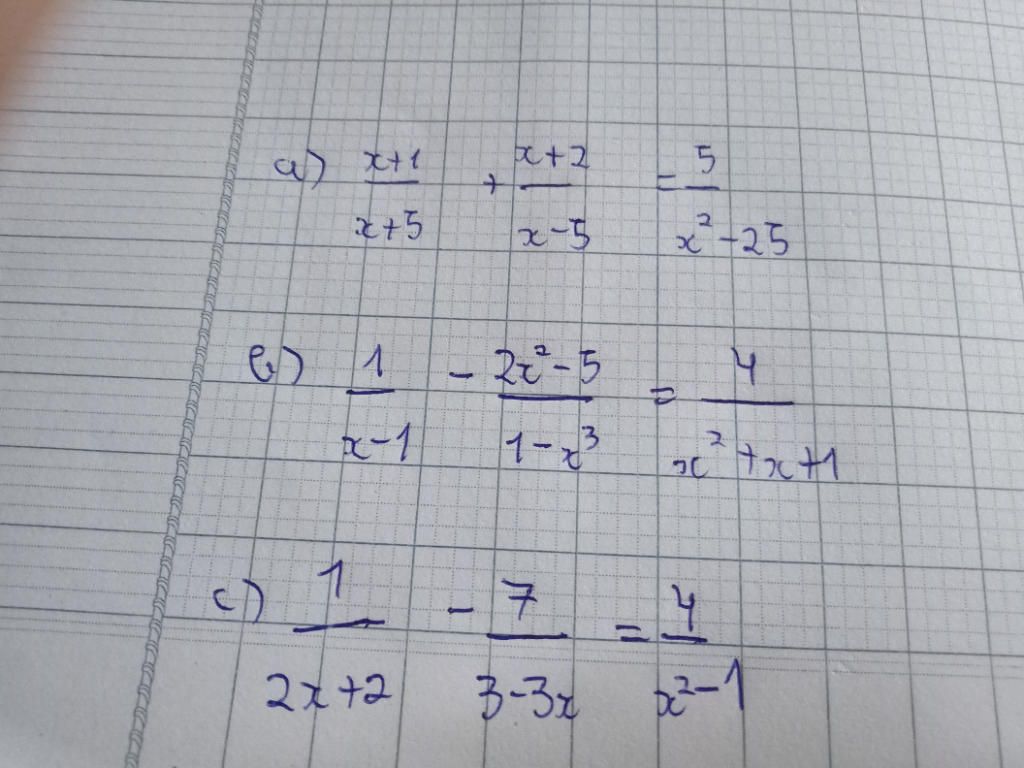 a) (x+1)/(x+5) + (x+2)/(x-5) = 5/(x²-25)
b) 1/(x-1) - (2x²-5)/(1-x³) = 4/(x²+x+1)
c) 1/(2x+2) - 7/(3-3x) = 4/(x²-1)